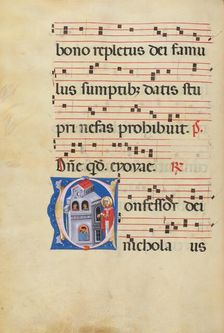 bono repletus dei famu
lus sumptibꝫ datis stu
pri nefas prohibuit. ps.
Dn̄e qd̄. evovae. ℟
Confessor dei
nichola us